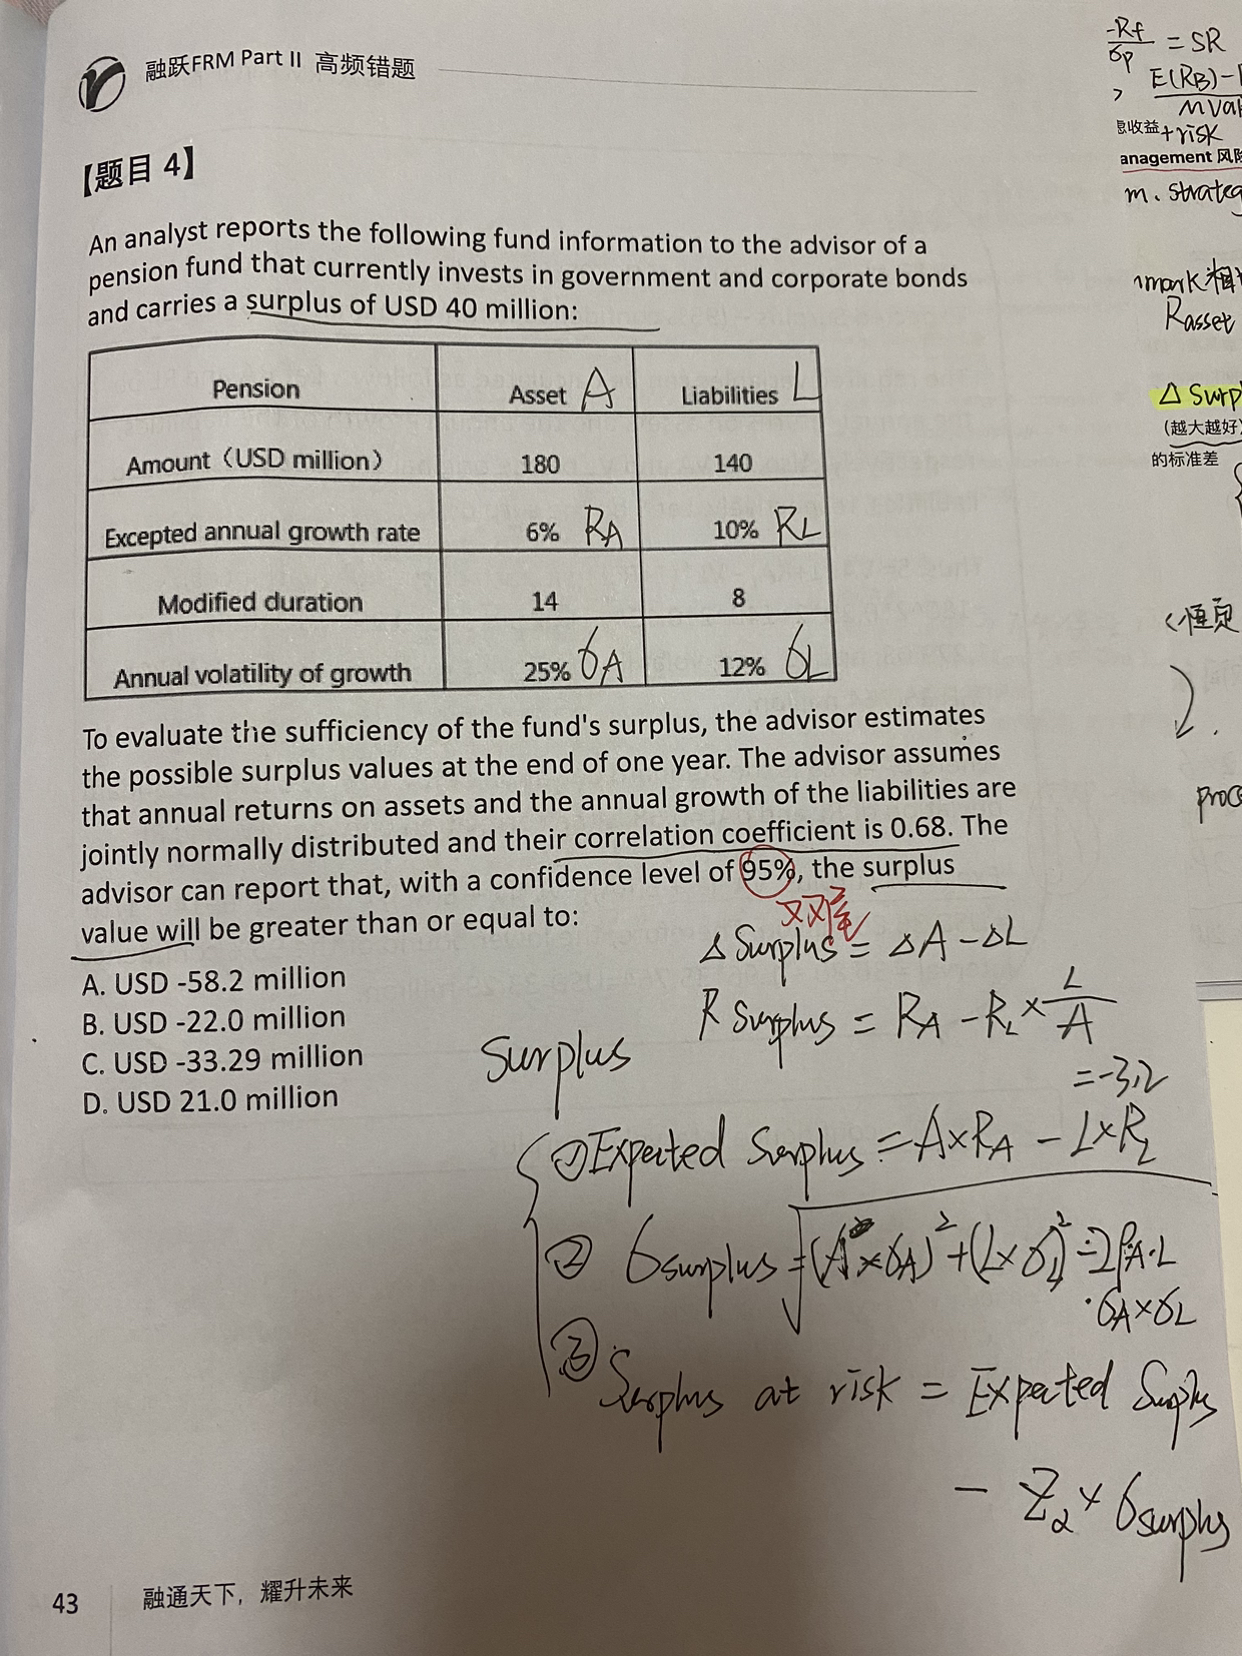 融跃FRM Part II 高频错题
【题目 4】
An analyst reports the following fund information to the advisor of a
pension fund that currently invests in government and corporate bonds
and carries a surplus of USD 40 million:
Pension Asset A Liabilities L
Amount（USD million） 180 140
Excepted annual growth rate 6% RA 10% RL
Modified duration 14 8
Annual volatility of growth 25% σA 12% σL
To evaluate the sufficiency of the fund's surplus, the advisor estimates
the possible surplus values at the end of one year. The advisor assumes
that annual returns on assets and the annual growth of the liabilities are
jointly normally distributed and their correlation coefficient is 0.68. The
advisor can report that, with a confidence level of 95%, the surplus
value will be greater than or equal to:
A. USD -58.2 million
B. USD -22.0 million
C. USD -33.29 million
D. USD 21.0 million
Δ Surplus = ΔA - ΔL
R Surplus = RA - RL × L/A
= -3.2
Surplus
① Expected Surplus = A×RA - L×RL
② σsurplus = √(A×σA)² + (L×σL)² - 2ρA·L
·σA×σL
③ Surplus at risk = Expected Surplus
- Zα × σsurplus
43 融通天下，耀升未来
-Rf/σp = SR
E(RB)-
+risk
anagement 风险
m. strateg
Rasset
Δ Surp
(越大越好)
的标准差